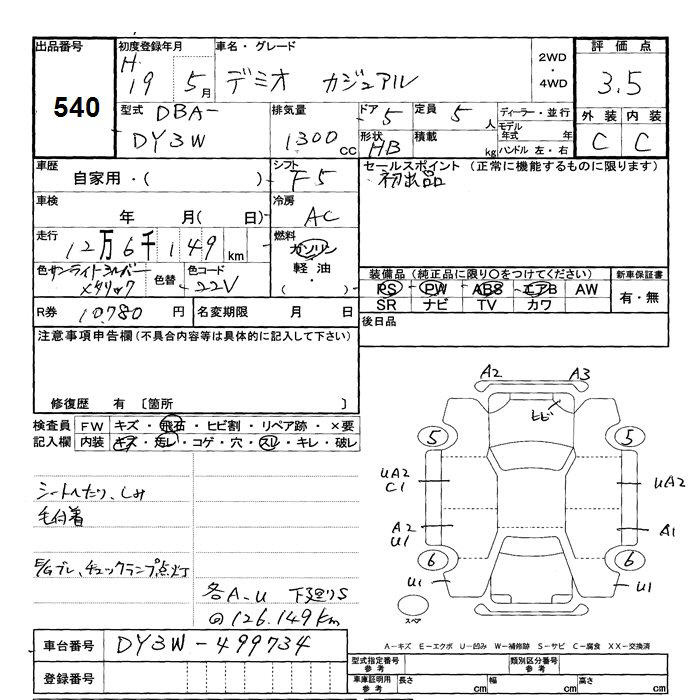 出品番号
540
初度登録年月
H 19 5月
車名・グレード
デミオ カジュアル
2WD
・
4WD
評価点
3.5
外装 内装
C C
型式 DBA-
DY3W
排気量
1300 CC
ドア 5
形状 HB
定員 5 人
積載 kg
ディーラー・並行
モデル年式 年
ハンドル 左・右
車歴
自家用・( )
シフト
F5
セールスポイント (正常に機能するものに限ります)
初出品
車検
年 月( 日)
冷房
AC
走行
12万6千149km
燃料
ガソリン
軽油
( ・ )
色 サンライトシルバー
メタリック
色替
色コード
22V
装備品 (純正品に限り○をつけてください)
PS PW ABS エアB AW
SR ナビ TV カワ
新車保証書
有・無
R券 10,780 円
名変期限 月 日
後日品
注意事項申告欄 (不具合内容等は具体的に記入して下さい)
修復歴 有 〔箇所 〕
検査員
記入欄
FW キズ・飛石・ヒビ割・リペア跡・×要
内装 キズ・汚レ・コゲ・穴・スレ・キレ・破レ
シートへたり、しみ
毛付着
E/Gブレ、チェックランプ点灯
各A-U 下廻りS
@126,149km
A2 A3
ヒビ
5 5
UA2
C1
UA2
A2
U1
A1
6 6
U1 U1
スペア
A-キズ E-エクボ U-凹み W-補修跡 S-サビ C-腐食 XX-交換済
車台番号 DY3W-499734
登録番号
型式指定番号
参考
類別区分番号
参考
車庫証明用
参考
長さ cm 幅 cm 高さ cm